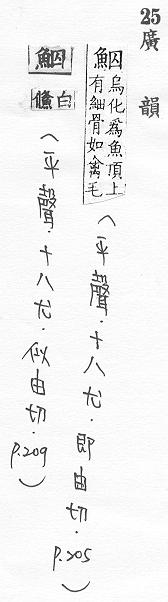 25 廣韻
鮂 烏化爲魚頂上有細骨如禽毛 (平聲.十八尤.即由切.p.205)
鮂 白鯈 (平聲.十八尤.似由切.p.209)